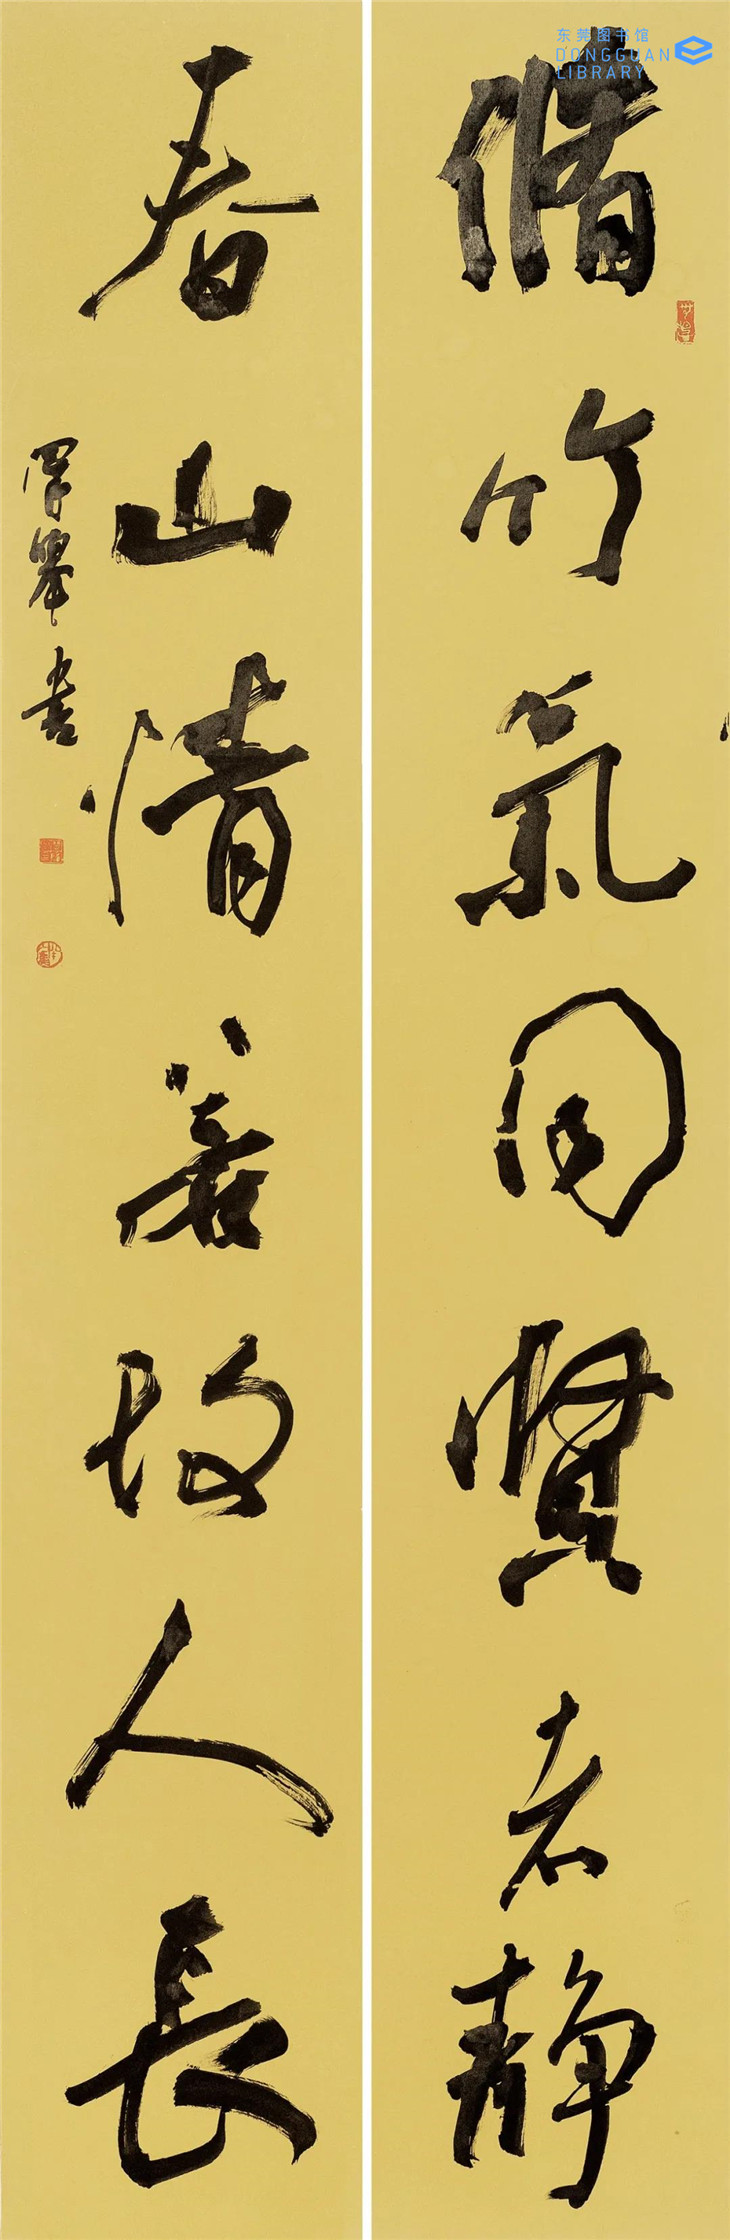 脩竹氣同賢者静
春山情若故人長
澤犖書
东莞图书馆
DONGGUAN
LIBRARY